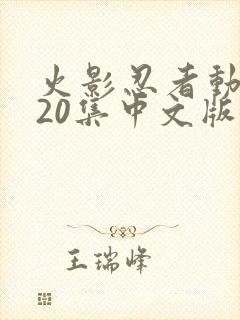 火影忍者動
20集中文版
王瑞峰